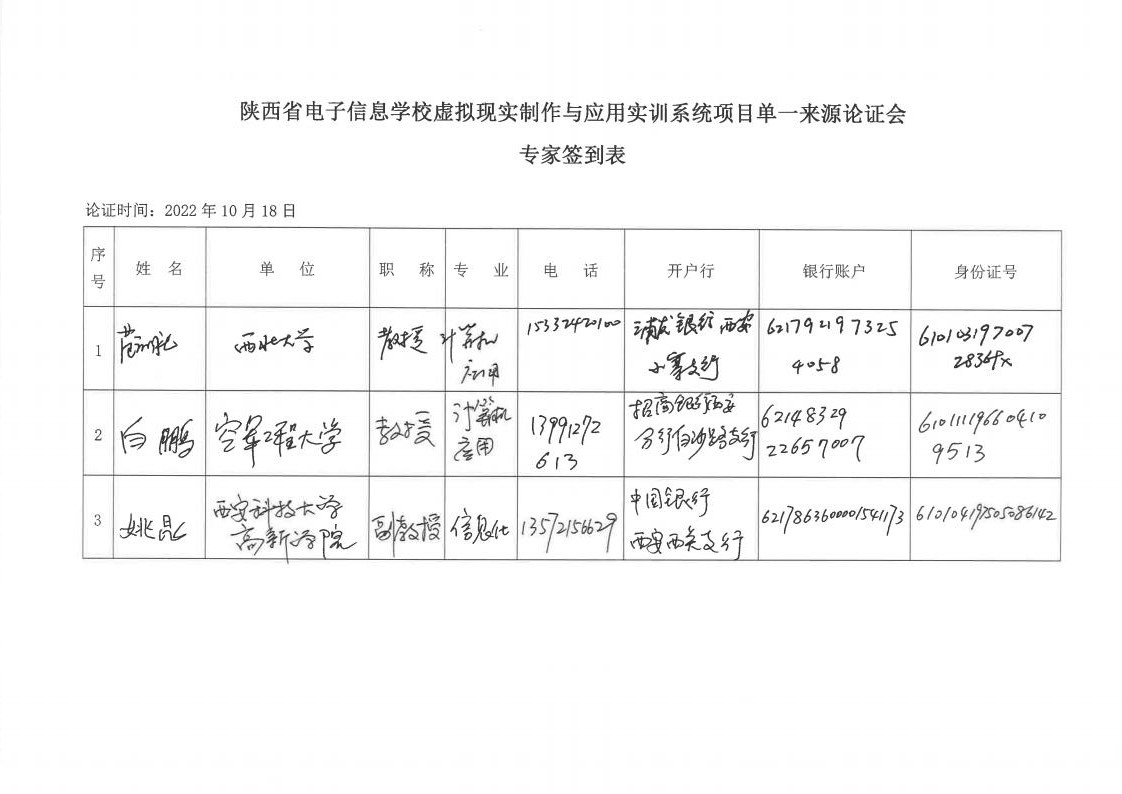 陕西省电子信息学校虚拟现实制作与应用实训系统项目单一来源论证会
专家签到表
论证时间：2022 年 10 月 18 日
序号 姓 名 单 位 职 称 专 业 电 话 开户行 银行账户 身份证号
1 范训礼 西北大学 教授 计算机 15332420100 浦发银行西安 621792197325 610103197007
应用 小寨支行 4058
2 白鹏 空军工程大学 教授 计算机 13991272 招商银行西安 62148329 61011119660410
应用 613 分行白沙路支行 22657007 9513
3 姚昆 西安科技大学 副教授 信息化 13572156629 中国银行 6217863600001541173 610104197505086142
高新学院 西安西关支行